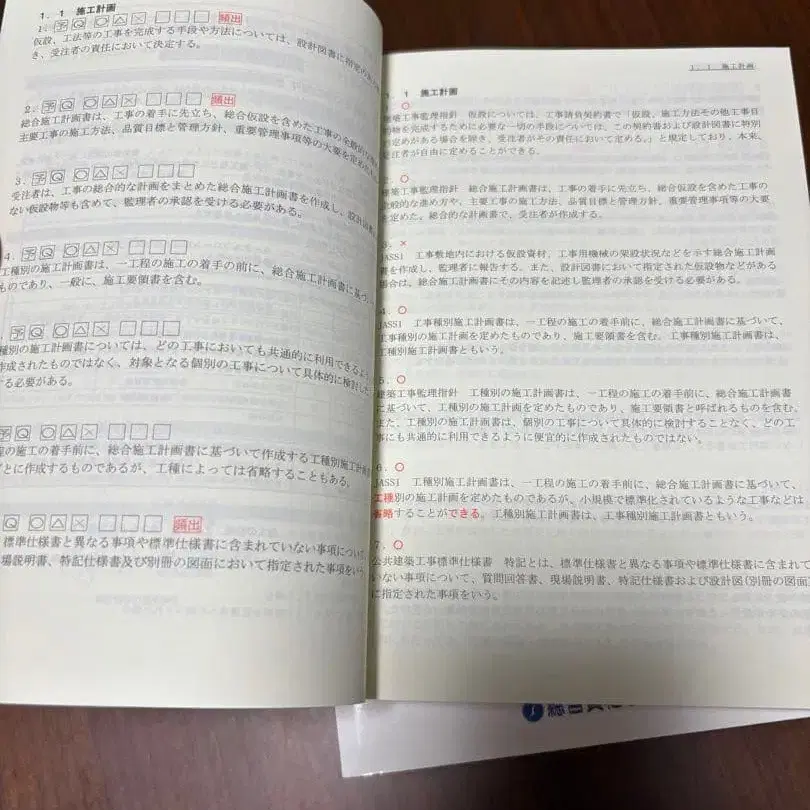 1．1　施工計画
1．予Q ○△× □□□ 頻出
仮設、工法等の工事を完成する手段や方法については、設計図書に指定の
き、受注者の責任において決定する。
2．予Q ○△× □□□ 頻出
総合施工計画書は、工事の着手に先立ち、総合仮設を含めた工事の全般的
主要工事の施工方法、品質目標と管理方針、重要管理事項等の大要を定めた
3．予Q ○△× □□□
受注者は、工事の総合的な計画をまとめた総合施工計画書を作成し、設計図書
ない仮設物等も含めて、監理者の承認を受ける必要がある。
4．予Q ○△× □□□
工種別の施工計画書は、一工程の施工の着手の前に、総合施工計画書に基づ
ものであり、一般に、施工要領書を含む。
予Q ○△× □□□
種別の施工計画書については、どの工事においても共通的に利用できるよう
作成されたものではなく、対象となる個別の工事について具体的に検討した
する必要がある。
予Q ○△× □□□
程の施工の着手前に、総合施工計画書に基づいて作成する工種別施工計
ごとに作成するものであるが、工種によっては省略することもある。
Q ○△× □□□ 頻出
標準仕様書と異なる事項や標準仕様書に含まれていない事項について
場説明書、特記仕様書及び別冊の図面において指定された事項をいう
1．1　施工計画
1．1　施工計画
1．○
建築工事監理指針　仮設については、工事請負契約書で「仮設、施工方法その他工事目
的物を完成するために必要な一切の手段については、この契約書および設計図書に特別
の定めがある場合を除き、受注者がその責任において定める。」と規定しており、本来、
受注者が自由に定めることができる。
2．○
建築工事監理指針　総合施工計画書は、工事の着手に先立ち、総合仮設を含めた工事の
全般的な進め方や、主要工事の施工方法、品質目標と管理方針、重要管理事項等の大要
を定めた、総合的な計画書で、受注者が作成する。
3．×
JASS1　工事敷地内における仮設資材、工事用機械の架設状況などを示す総合施工計画
書を作成し、監理者に報告する。また、設計図書において指定された仮設物などがある
場合は、総合施工計画書にその内容を記述し監理者の承認を受ける必要がある。
4．○
JASS1　工事種別施工計画書は、一工程の施工の着手前に、総合施工計画書に基づいて、
工種別の施工計画を定めたものであり、施工要領書を含む。工事種別施工計画書は、
工種別施工計画書ともいう。
5．○
建築工事監理指針　工種別の施工計画書は、一工程の施工の着手前に、総合施工計画書
に基づいて、工種別の施工計画を定めたものであり、施工要領書と呼ばれるものを含む。
また、工種別の施工計画書は、個別の工事について具体的に検討することなく、どの工
事にも共通的に利用できるように便宜的に作成されたものではない。
6．○
JASS1　工種別施工計画書は、一工程の施工の着手前に、総合施工計画書に基づいて、
工種別の施工計画を定めたものであるが、小規模で標準化されているような工事などは
省略することができる。工種別施工計画書は、工事種別施工計画書ともいう。
7．○
公共建築工事標準仕様書　特記とは、標準仕様書と異なる事項や標準仕様書に含まれて
いない事項について、質問回答書、現場説明書、特記仕様書および設計図(別冊の図面)
に指定された事項をいう。